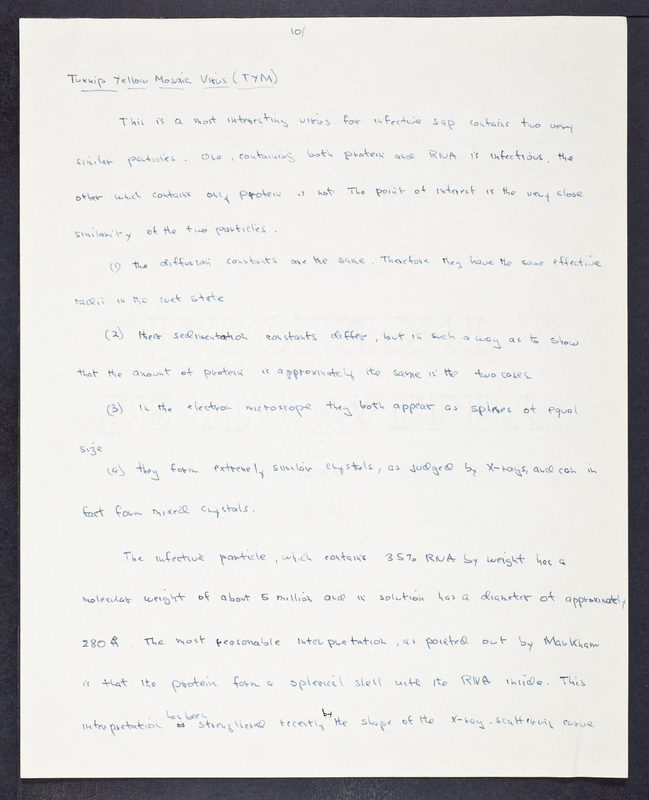 10/
Turnip Yellow Mosaic Virus (TYM)
This is a most interesting virus for infective sap contains two very
similar particles. One, containing both protein and RNA is infectious, the
other which contains only protein is not. The point of interest is the very close
similarity of the two particles.
(1) the diffusion constants are the same. Therefore they have the same effective
radii in the wet state
(2) their sedimentation constants differ, but in such a way as to show
that the amount of protein is approximately the same in the two cases.
(3) In the electron microscope they both appear as spheres of equal
size
(4) they form extremely similar crystals, as judged by X-rays, and can in
fact form mixed crystals.
The infective particle, which contains 35% RNA by weight has a
molecular weight of about 5 million and in solution has a diameter of approximately
280 Å. The most reasonable interpretation, as pointed out by Markham
is that the protein form a spherical shell with the RNA inside. This
interpretation has been strengthened recently by the shape of the X-ray scattering curve